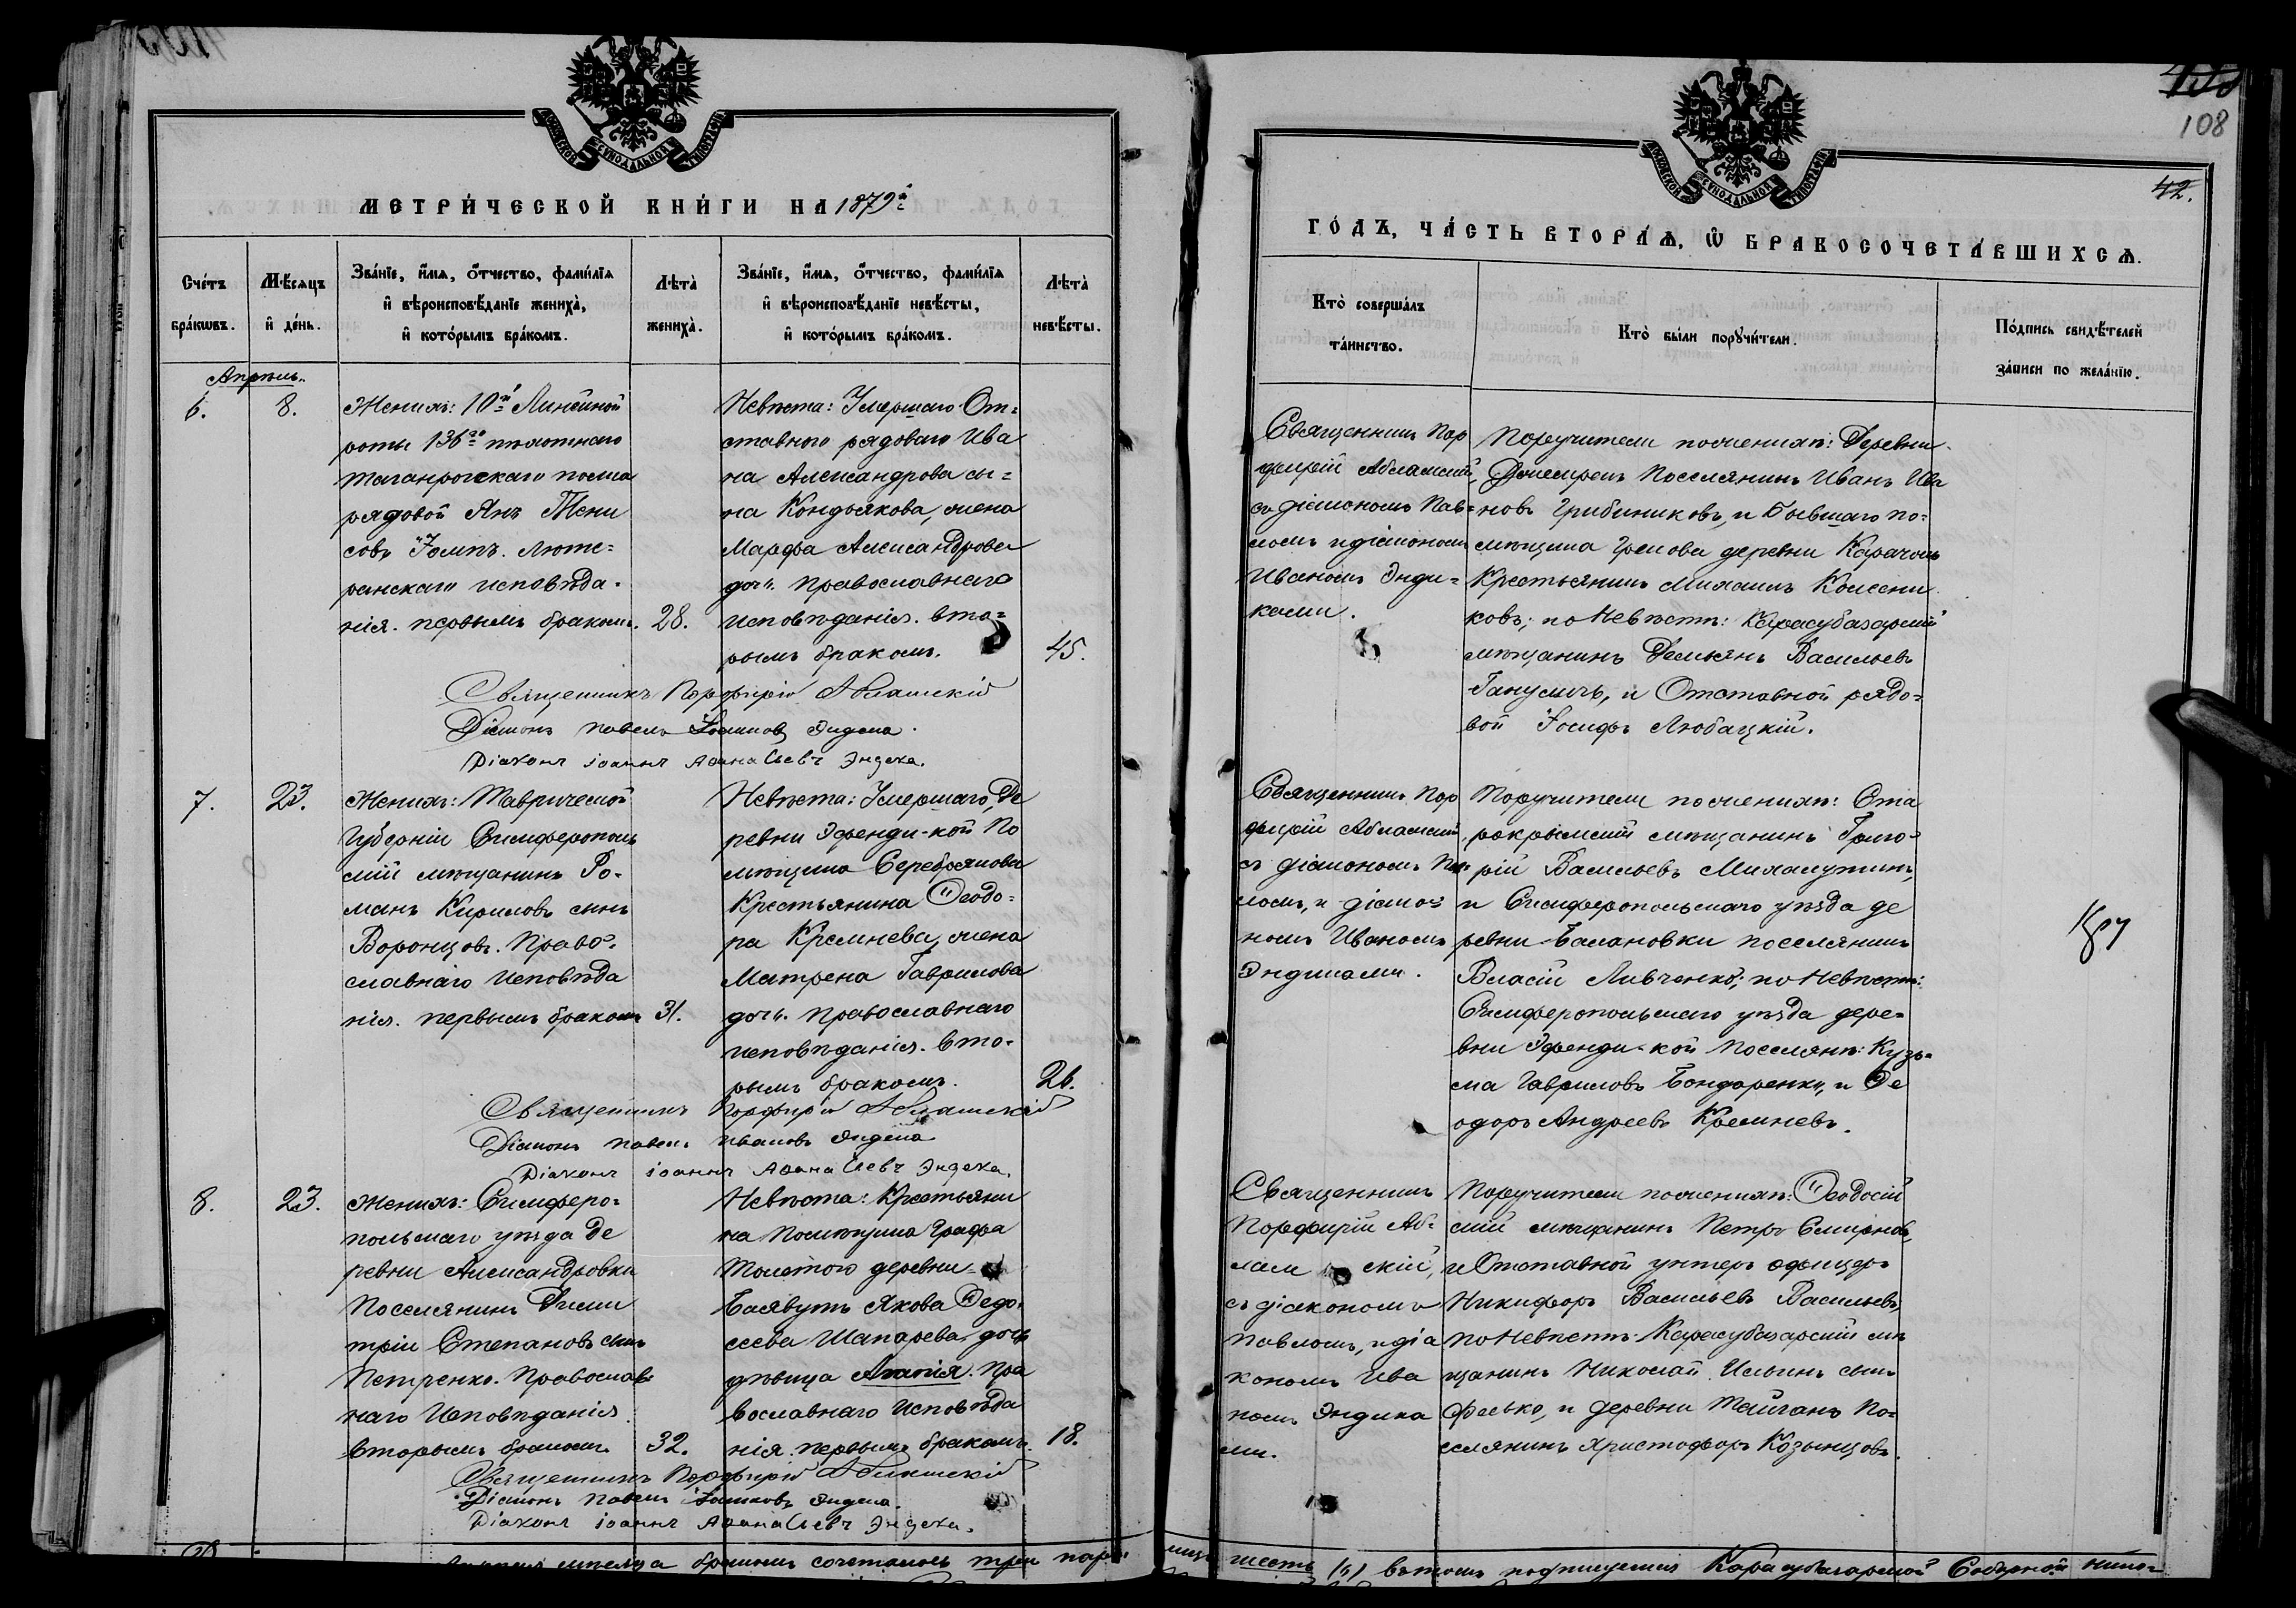 108
42.
МЕТРИ́ЧЕСКОЙ КНИ́ГИ НА 1879й
ГО́ДЪ, ЧА́СТЬ ВТОРА́Я, Ѡ БРАКОСОЧЕТА́ВШИХСЯ.
Сче́тъ бра́ковъ.
Мѣ́сяцъ и де́нь.
Зва́нїе, и́мя, о́тчество, фами́лїя
и вѣроисповѣ́данїе жениха̀,
и кото́рымъ бра́комъ.
Лѣта̀ жениха̀.
Зва́нїе, и́мя, о́тчество, фами́лїя
и вѣроисповѣ́данїе невѣ́сты,
и кото́рымъ бра́комъ.
Лѣта̀ невѣ́сты.
Кто̀ соверша́лъ
та́инство.
Кто̀ бы́ли пору́чители.
По́дпись свидѣ́телей
за́писи по жела́нїю.
Апрѣль.
6.
8.
Женихъ: 10й Линейной
роты 136го пѣхотнаго
Таганрогскаго полка
рядовой Янъ Тени
совъ Іомпъ. Люте=
ранскаго исповѣда=
нія. первымъ бракомъ.
28.
Невѣста: Умершаго От=
ставного рядоваго Ива
на Александрова сы=
на Кондъякова, жена
Марфа Александрова
дочь. Православнаго
исповѣданія. вто=
рымъ бракомъ.
45.
Священникъ Пор
фирій Абламскій,
съ діакономъ Пав=
ломъ и діакономъ
Иваномъ Энди=
ками.
Поручители по женихѣ: Деревни
Поселянинъ Иванъ Ива
новъ Грибиниковъ, и бывшаго по=
мѣщика Грекова деревни Карачоль
Крестьянинъ Михаилъ Колесни
ковъ; по Невѣстѣ: Карасубазарскій
мѣщанинъ Демьянъ Васильевъ
и Отставной рядо=
вой Іосифъ Любацкій.
Священникъ Порфирій Абламскій
Діаконъ Павелъ Іоанновъ Эндека.
Діаконъ Іоаннъ Аѳанасьевъ Эндека.
7.
23.
Женихъ: Таврической
Губерніи Симферополь
скій мѣщанинъ Ро=
манъ Кириловъ сынъ
Воронцовъ. Право=
славнаго исповѣда
нія. первымъ бракомъ
31.
Невѣста: Умершаго, Де
ревни Эфенди-кой По
мѣщика Серебрякова
Крестьянина Ѳеодо=
ра Кремнева, жена
Матрена Гаврилова
дочь. Православнаго
исповѣданія. вто=
рымъ бракомъ.
26.
Священникъ Пор
фирій Абламскій
съ діакономъ Пав
ломъ, и діако=
номъ Иваномъ
Эндиками.
Поручители по женихѣ: Ста
рокрымскій мѣщанинъ Григо=
рій Васильевъ
и Симферопольскаго уѣзда де
ревни Балановки поселянинъ
Власій Ливченко; по Невѣстѣ:
Симферопольскаго уѣзда дере=
вни Эфенди-кой Поселяне: Кузь=
ма Гавриловъ Бондаренко, и Ѳе
одоръ Андреевъ Кремневъ.
Священникъ Порфирій Абламскій
Діаконъ Павелъ Ивановъ Эндека
Діаконъ Іоаннъ Аѳанасьевъ Эндека.
8.
23.
Женихъ: Симферо=
польскаго уѣзда де
ревни Александровки
Поселянинъ Дими
трій Степановъ сынъ
Петренко. Православ
наго Исповѣданія
вторымъ бракомъ.
32.
Невѣста: Крестьяни
на Помѣщика Графа
деревни
Якова Ѳедо
сеева Шапарева, дочь
дѣвица Агапія. Пра
вославнаго Исповѣда
нія. первымъ бракомъ.
18.
Священникъ
Порфирій Аб=
ламскій,
съ діакономъ
Павломъ, и діа
кономъ Ива
номъ Эндика
ми.
Поручители по женихѣ: Ѳеодосій
скій мѣщанинъ Петръ Смирновъ,
и Отставной унтеръ офицеръ
Никифоръ Васильевъ Васильевъ,
по Невѣстѣ: Карасубазарскій мѣ
щанинъ Николай Ильинъ сынъ
Фесько, и деревни Тайганъ По=
селянинъ Христофоръ Козынцовъ.
Священникъ Порфирій Абламскій
Діаконъ Павелъ Іоанновъ Эндека.
Діаконъ Іоаннъ Аѳанасьевъ Эндека.
бракомъ сочеталось три пары
шесть въ томъ подписуемся Карасубазарской Соборной